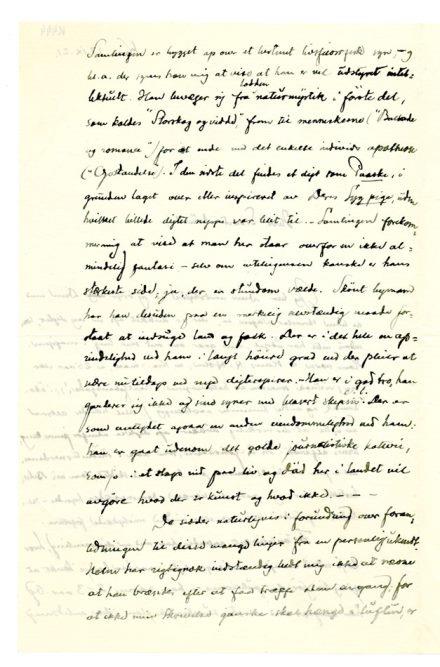 Samlingen er bygget op over et bestemt livsfilosofisk syn, - og
bl.a. der synes han mig at vise at han er vel udstyret intel-
lektuelt. Han bevæger sig fra naturmystik i første del,
som kaldes "Storskog og vidde" frem til menneskene ("
og romance") for at ende med det enkelte individs apotheose
("Opstandelse). I den siste del findes et digt som Paaske, i
grunden laget over eller inspireret av Deres Syg pige, uten
hvilket billede digtet neppe var blit til. - Samlingen forekom-
mer mig at vise at man her staar overfor en ikke al-
mindelig fantasi - selv om intelligensen kanske er hans
sterkeste side, ja, der en stundom vælde. Skjønt bymand
har han desuden paa en merkelig selvstændig maate for-
staat at indsuge land og folk. Der er i det hele en op-
rindelighed ved ham i langt høiere grad end der pleier at
være nu tildags ved nye digterspirer. Han er i god tro, han
garderer sig ikke og sine syner ved blaseret skepsis. Der er
som enlighet ogsaa en anden eiendommelighed ved ham:
han er gaat utenom det golde journalistiske kateri,
som jo i at slaps nit paa liv og død her i landet vil
avgjøre hvad der er kunst og hvad ikke. - - -
De sidder naturligvis i forundring over foran-
ledningen til disse mange linjer fra en personlig ukendt.
har rigtignok indstændig bedt mig ikke at nævne
at han brænder efter at faa træffe Dem engang, for
at ikke min skrivelse ganske skal hænge i luften, er